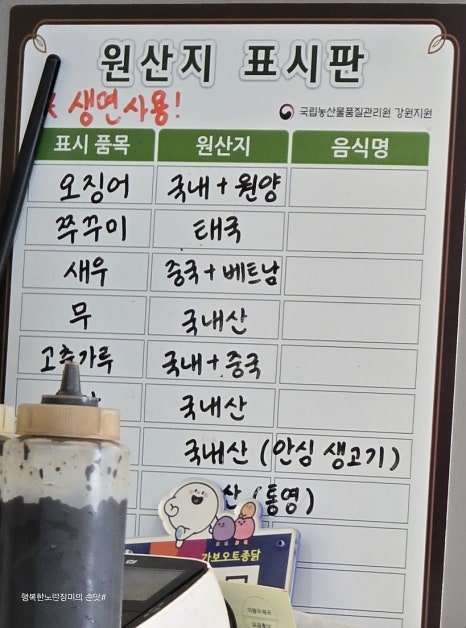 원산지 표시판
※ 생면사용!
국립농산물품질관리원 강원지원
표시 품목 원산지 음식명
오징어 국내+원양
쭈꾸미 태국
새우 중국+베트남
무 국내산
고추가루 국내+중국
국내산
국내산 (안심 생고기)
산 (통영)
가보오토종닭
행복한노란장미의 손맛#